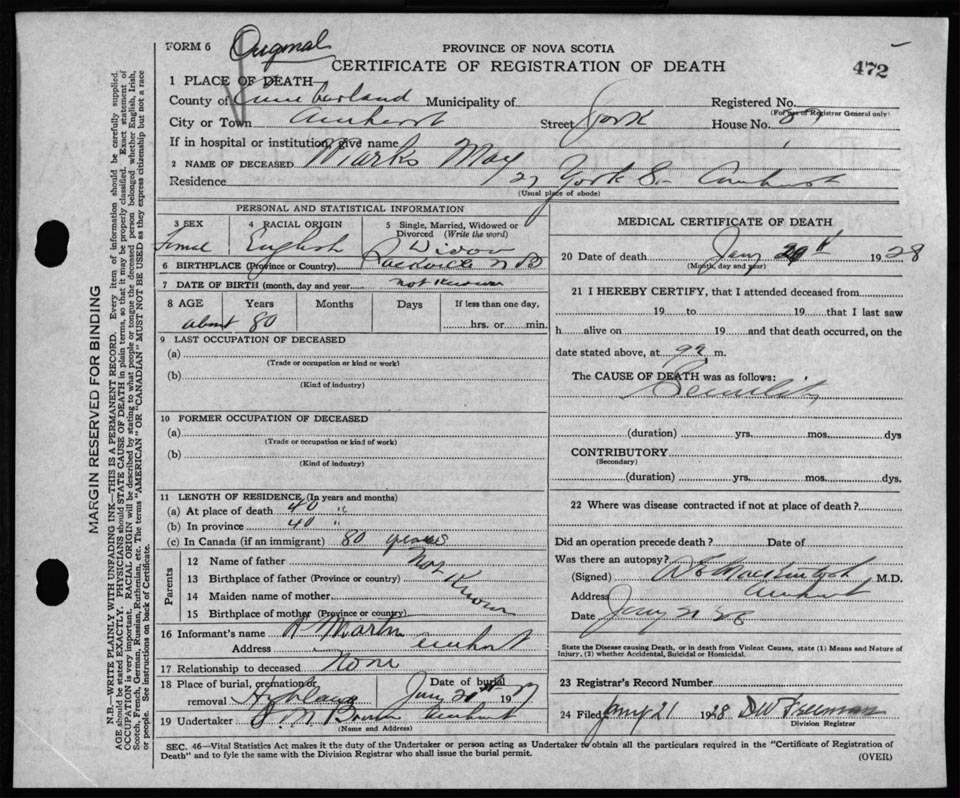 FORM 6 Original
PROVINCE OF NOVA SCOTIA
CERTIFICATE OF REGISTRATION OF DEATH
472
1 PLACE OF DEATH
County of Cumberland Municipality of Registered No.
(For use of Registrar General only)
City or Town Amherst Street York House No.
If in hospital or institution, give name
2 NAME OF DECEASED Marks May
Residence 27 York St Amherst
(Usual place of abode)
PERSONAL AND STATISTICAL INFORMATION
3 SEX 4 RACIAL ORIGIN 5 Single, Married, Widowed or Divorced (Write the word)
Femal English Widow
6 BIRTHPLACE (Province or Country) Sackville N B
7 DATE OF BIRTH (month, day and year) not known
8 AGE Years Months Days If less than one day,
about 80 hrs. or min.
9 LAST OCCUPATION OF DECEASED
(a)
(Trade or occupation or kind or work)
(b)
(Kind of industry)
10 FORMER OCCUPATION OF DECEASED
(a)
(Trade or occupation or kind of work)
(b)
(Kind of industry)
11 LENGTH OF RESIDENCE (In years and months)
(a) At place of death 40 "
(b) In province 40 "
(c) In Canada (if an immigrant) 80 years
Parents
12 Name of father Not
13 Birthplace of father (Province or country) Known
14 Maiden name of mother
15 Birthplace of mother (Province or country)
16 Informant's name A Martin
Address Amherst
17 Relationship to deceased None
18 Place of burial, cremation or Date of burial
removal Highland Jany 20th 1927
19 Undertaker Amherst
(Name and Address)
MEDICAL CERTIFICATE OF DEATH
20 Date of death Jany 20th 1928
(Month, day and year)
21 I HEREBY CERTIFY, that I attended deceased from
19 to 19 that I last saw
h alive on 19 and that death occurred, on the
date stated above, at m.
The CAUSE OF DEATH was as follows:
Senility
(duration) yrs. mos. dys
CONTRIBUTORY
(Secondary)
(duration) yrs. mos. dys.
22 Where was disease contracted if not at place of death?
Did an operation precede death? Date of
Was there an autopsy?
(Signed) MacKintosh M.D.
Address Amherst
Date Jany 21 28
State the Disease causing Death, or in death from Violent Causes, state (1) Means and Nature of
Injury, (2) whether Accidental, Suicidal or Homicidal.
23 Registrar's Record Number
24 Filed Jany 21 1928 D W Freeman
Division Registrar
SEC. 46—Vital Statistics Act makes it the duty of the Undertaker or person acting as Undertaker to obtain all the particulars required in the "Certificate of Registration of
Death" and to fyle the same with the Division Registrar who shall issue the burial permit.
(OVER)
MARGIN RESERVED FOR BINDING
N.B.—WRITE PLAINLY WITH UNFADING INK—THIS IS A PERMANENT RECORD. Every item of information should be carefully supplied.
AGE should be stated EXACTLY. PHYSICIANS should STATE CAUSE OF DEATH in plain terms, so that it may be properly classified. Exact statement of
OCCUPATION is very important. RACIAL ORIGIN will be described by stating to what people or tongue the deceased person belonged whether English, Irish,
Scotch, French, German, Russian, Ruthenian, etc. The terms "AMERICAN" OR "CANADIAN" MUST NOT BE USED as they express citizenship but not a race
or people. See instructions on back of Certificate.